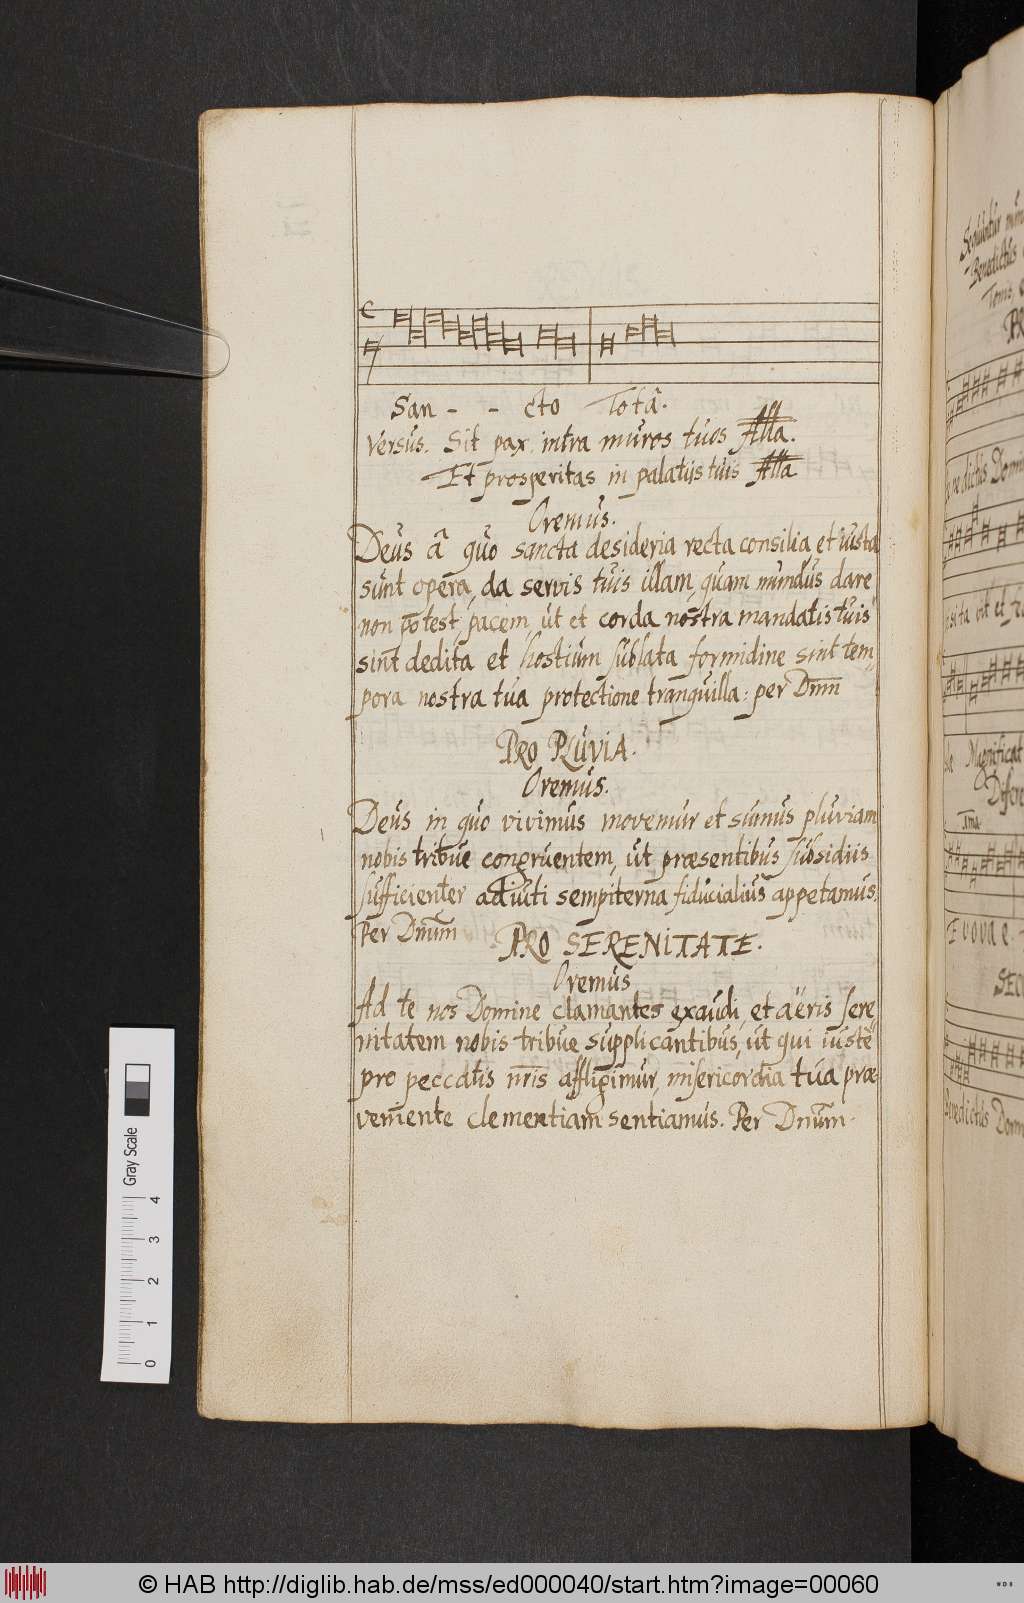 San - - cto Totâ.
Versus. Sit pax intra muros tuos Alla.
Et prosperitas in palatijs tuis Alla
Oremus.
Deus â quo sancta desideria recta consilia, et iusta
sunt opera, da servis tuis illam, quam mundus dare
non potest, pacem ut et corda nostra mandatis tuis
sint dedita et hostium sublata formidine sint tem„
pora nostra tua protectione tranquilla: per Dmn
PRO PLUVIA.
Oremus.
Deus in quo vivimus movemur et sumus pluviam
nobis tribue congruentem, ut præsentibus subsidiis
sufficienter adiuti sempiterna fiducialius appetamus.
Per Dnum
PRO SERENITATE.
Oremus
Ad te nos Domine clamantes exaudi, et aëris sere„
nitatem nobis tribue supplicantibus, ut qui iuste
pro peccatis nris affligimur, misericordia tua præ„
veniente clementiam sentiamus. Per Dnum.
Sequuntur
Benedictus
Toni
nedictus Domi
sita vit et re
Magnificat
Differe
E vovae
SEC
Benedictus Dom
Gray Scale
0 1 2 3 4
© HAB http://diglib.hab.de/mss/ed000040/start.htm?image=00060
WDB